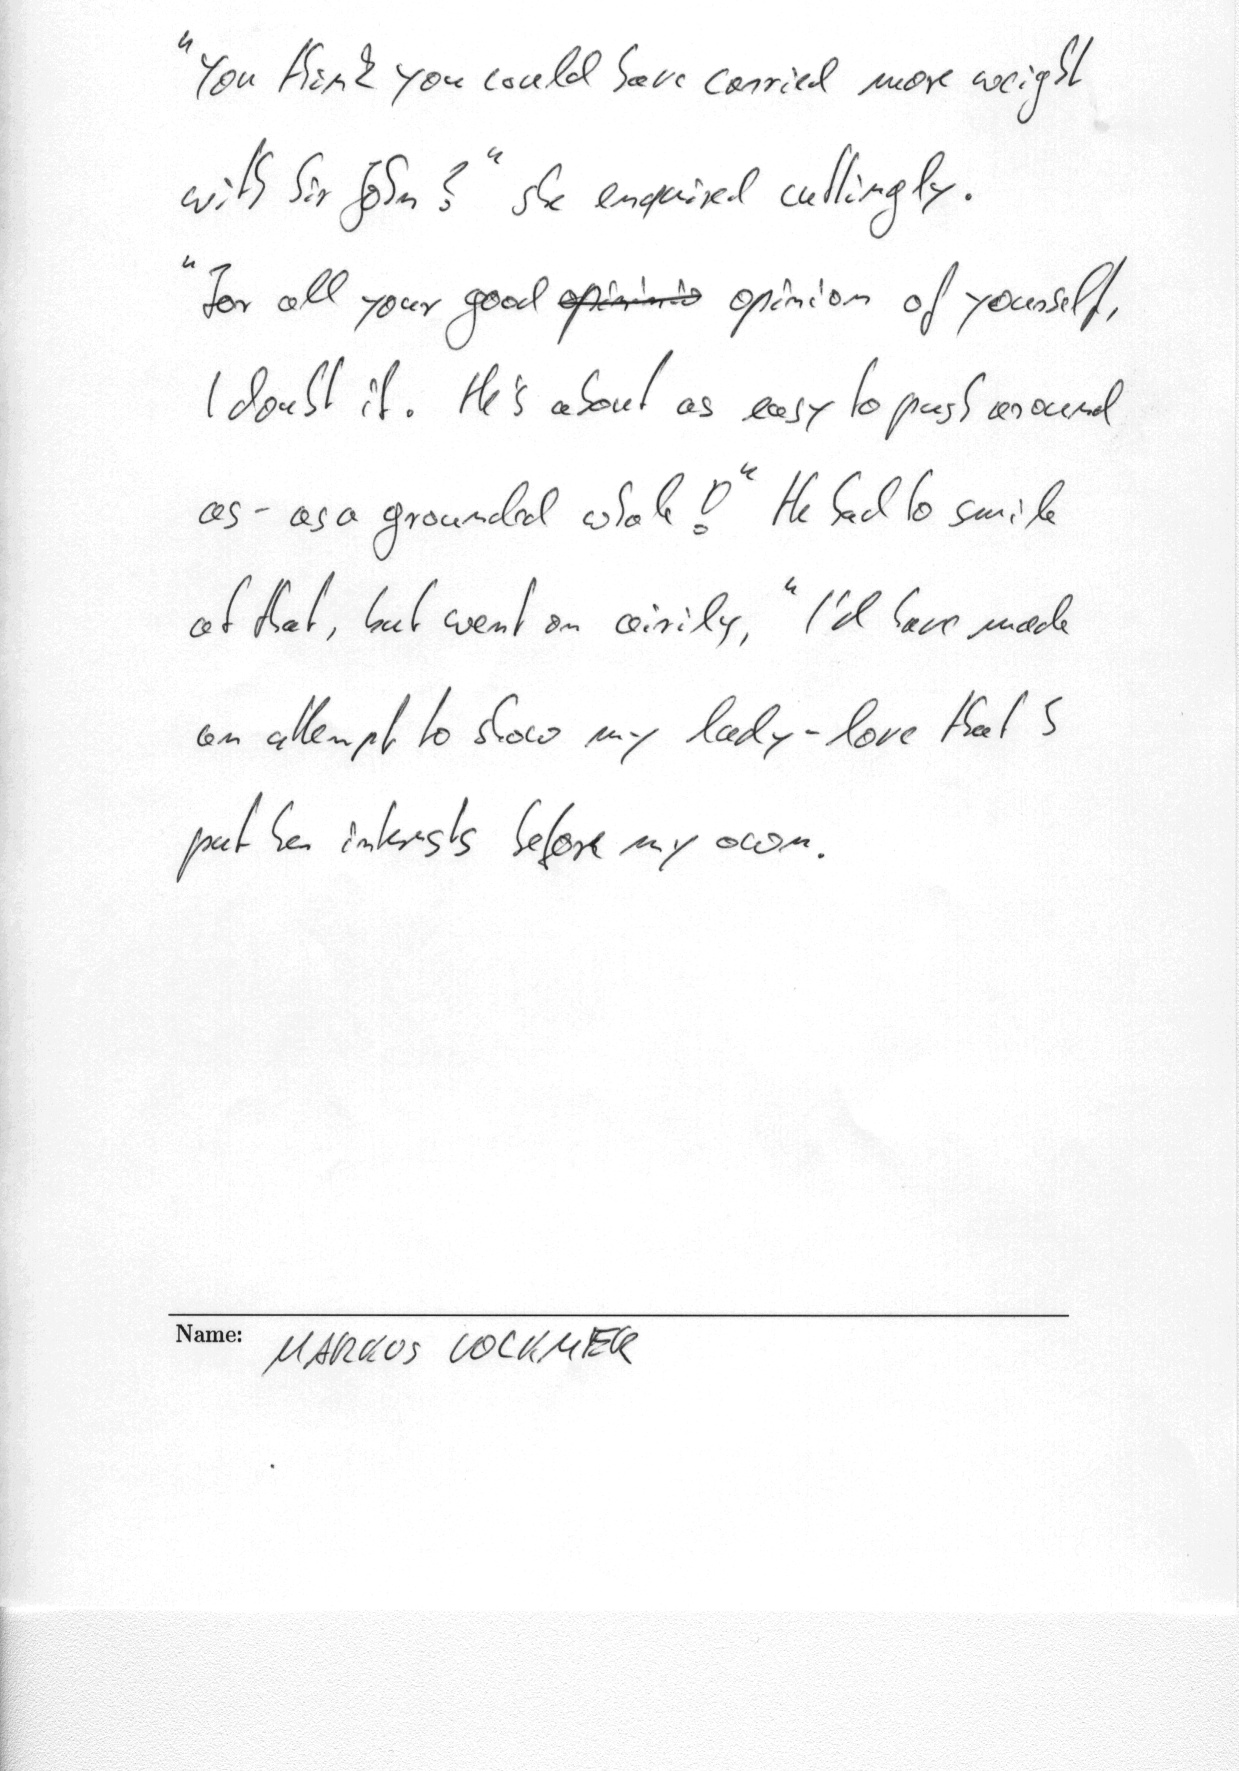 "You think you could have carried more weight
with Sir John?" she enquired cuttingly.
"For all your good opininio opinion of yourself,
I doubt it. He's about as easy to push around
as - as a grounded whale!" He had to smile
at that, but went on airily, "I'd have made
an attempt to show my lady-love that I
put her interests before my own.
Name: MARKUS